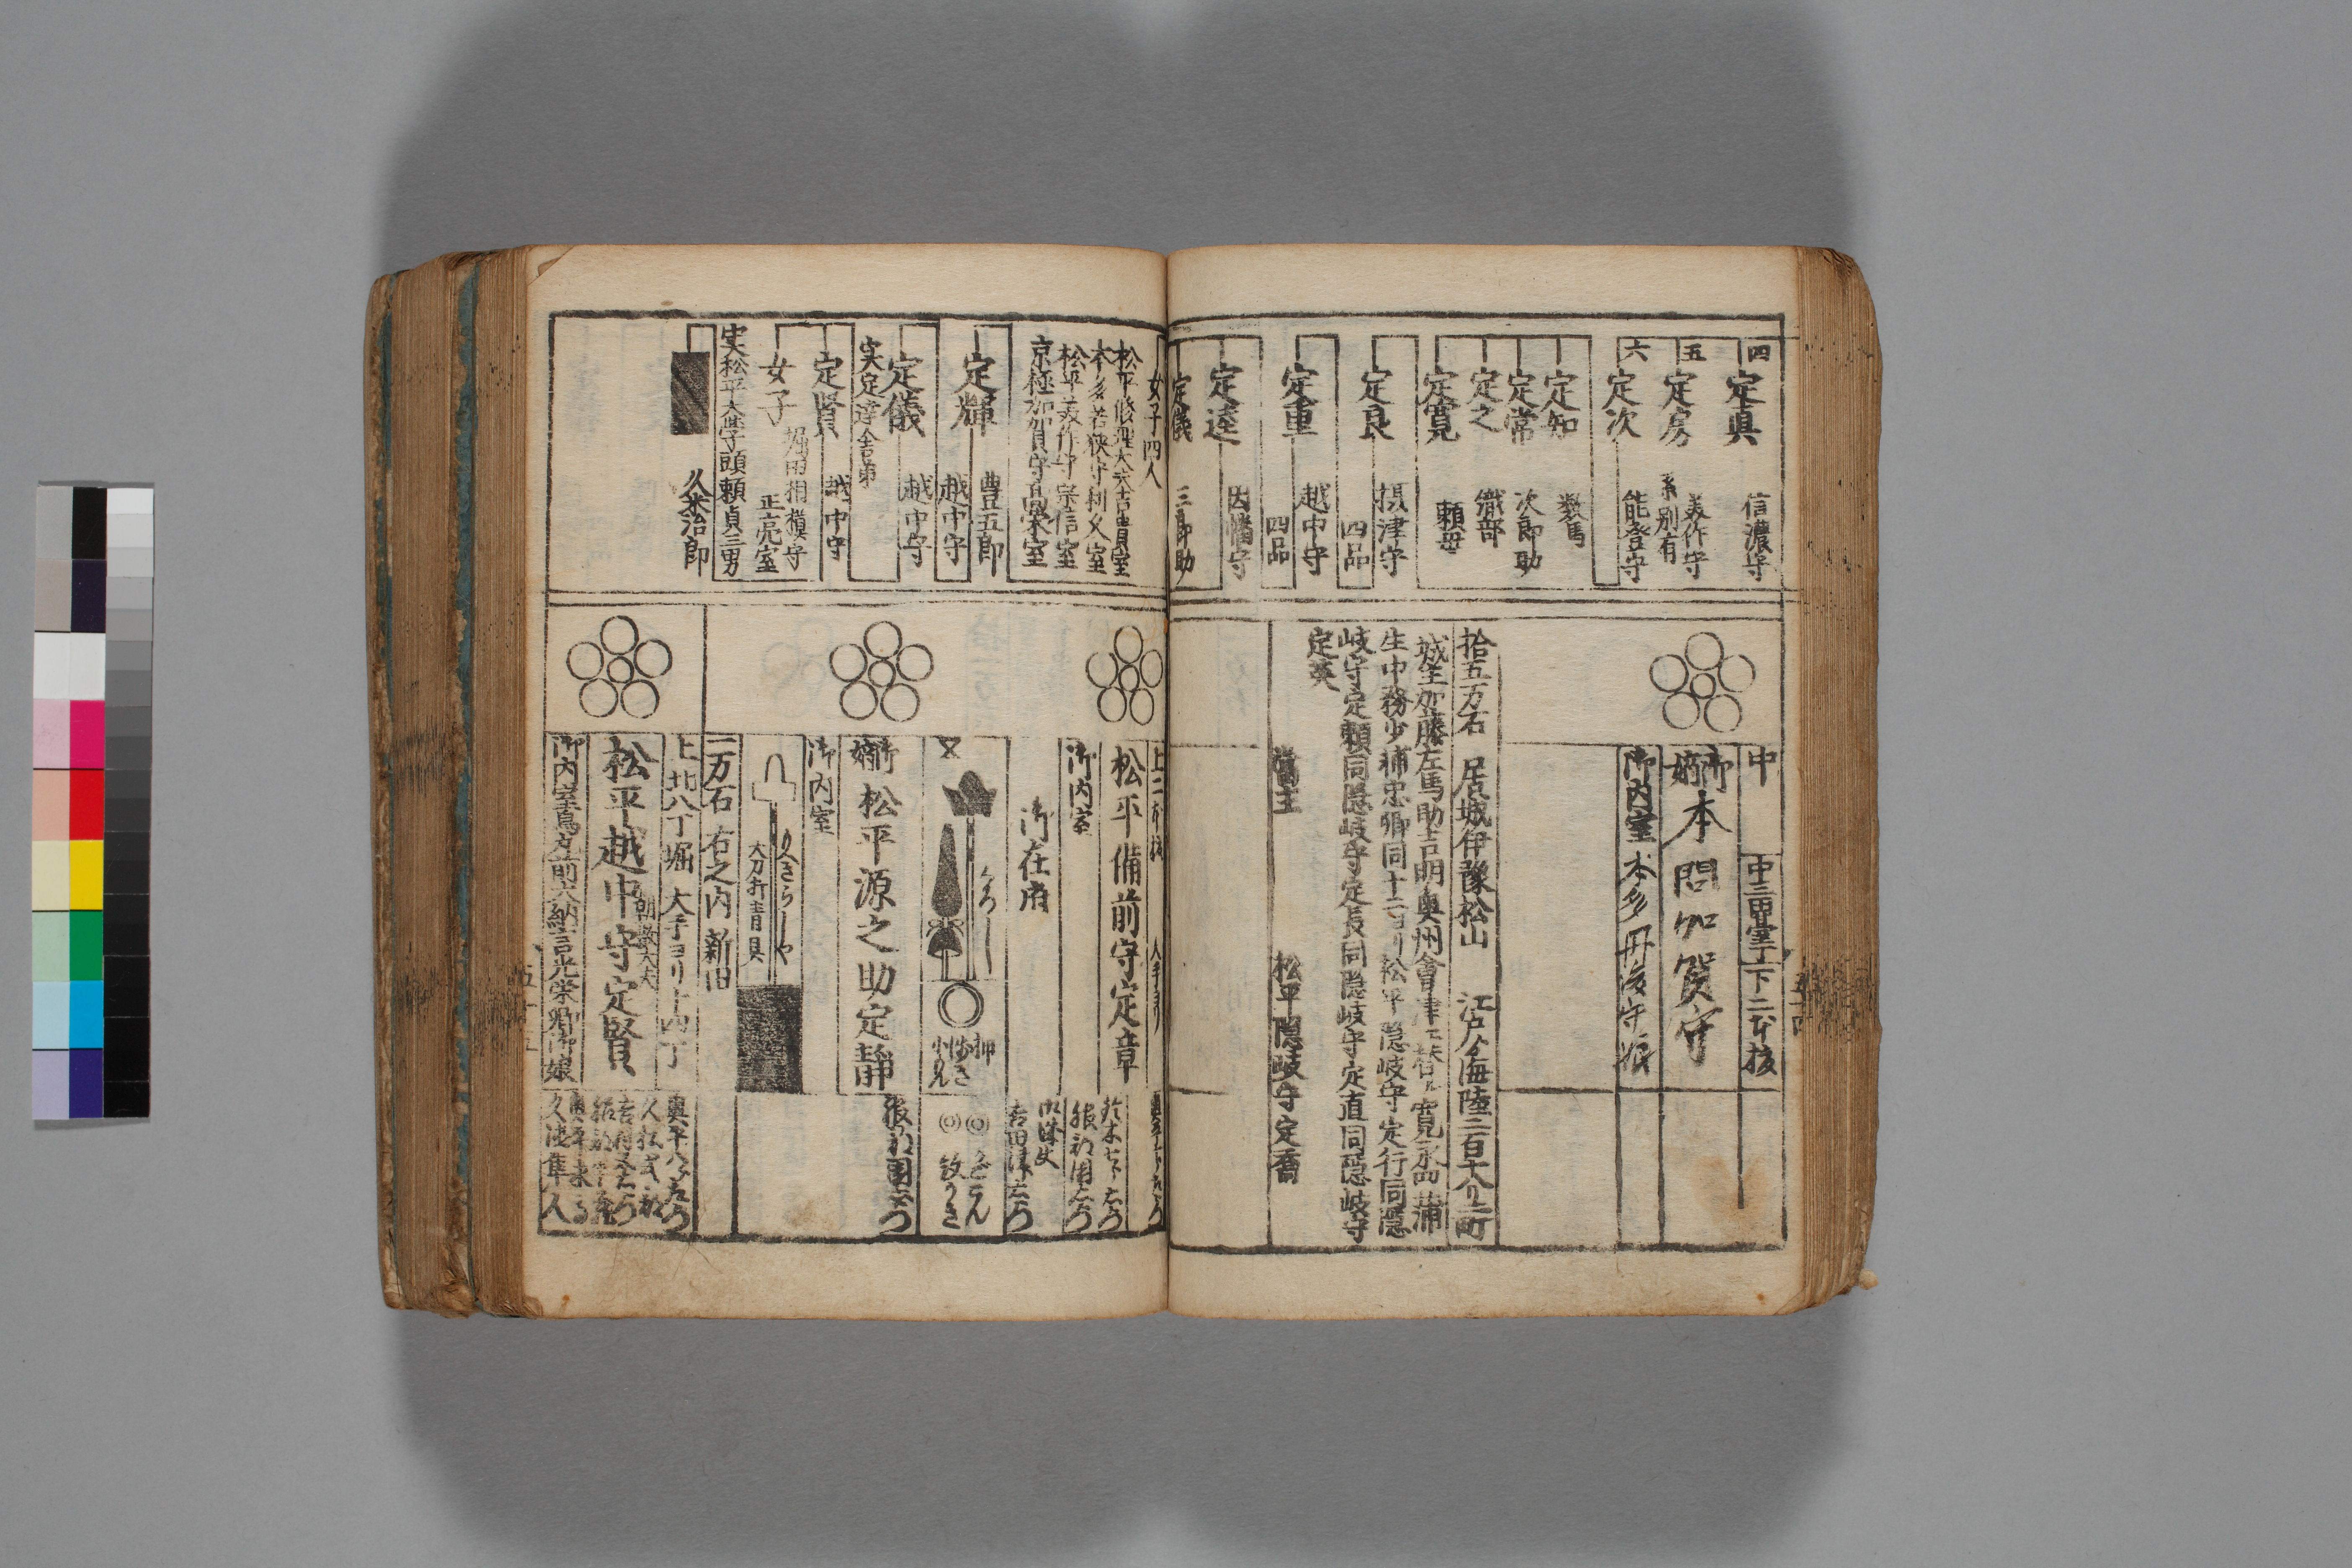 四 定眞 信濃守
五 定房 美作守
系別有
六 定次 能登守
定知 数馬
定常 次郎助
定之 織部
定寛 頼母
定良 摂津守
四品
定重 越中守
四品
定逵 因幡守
定儀 三郎助
中
中三田聖坂 下二本榎
御嫡 本問加賀守
御内室 本多丹後守娘
拾五万石 居城伊豫松山 江戸ヨリ海陸二百十八リ三町
城主加藤左馬助吉明奥州會津江替ル寛永四蒲
生中務少輔忠郷同十二ヨリ松平隠岐守定行同隠
岐守定頼同隠岐守定長同隠岐守定直同隠岐守
定英
當主 松平隠岐守定喬
女子四人
松平修理大夫吉貴室
本多若狭守利久室
松平美作守宗信室
京極加賀守高室
定輝 豊五郎
越中守
定儀 越中守
実定逵舎弟
定賢 越中守
女子 堀田相模守
正亮室
実松平大学頭頼貞三男
久米治郎
松平備前守定章
御内室
御在府
御嫡 松平源之助定静
御内室
大刀打青貝
一万石 右之内新旧
上 北八丁堀 大手ヨリ十四丁
松平越中守定賢
朝散大夫
御内室烏丸前大納言光栄卿御娘
服部圖
吉田
久徳隼人